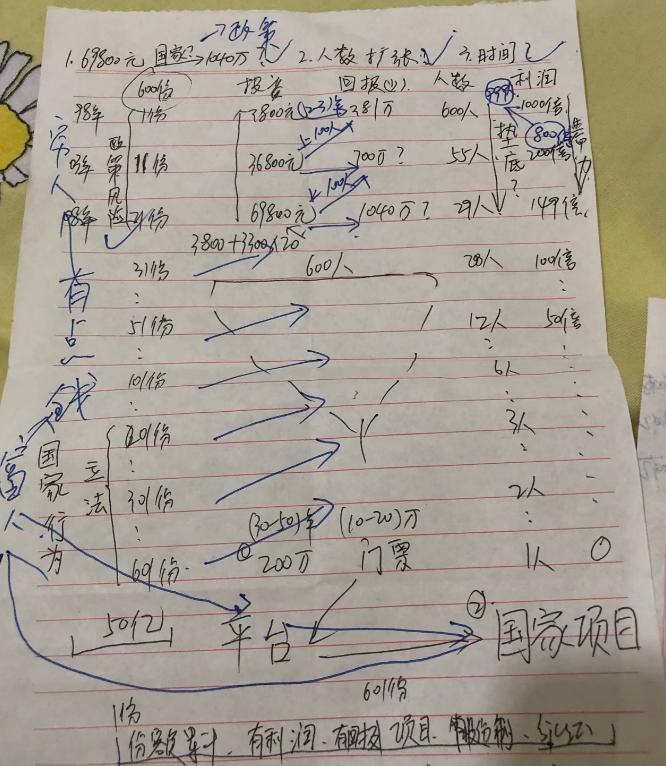 →政策
1.69800元 国家?→1040万? 2.人数扩张? 3.时间?
600份 投资 回报(1) 人数 利润
98年 1份 3800元 (2-3)年 381万 600人 1000倍
上100人 800倍
11份 36800元 700万? 55人 200倍
上100人
21份 69800元 1040万? 29人 149倍
3800+3300×20
31份 600人 20人 100倍
51份 12人 50倍
101份 6人
201份 3人
301份 2人
(30-50)年 (10-20)万
601份 ① 200万 门票 1人 0
穷人
有点钱
富人
政策风险
国家行为
立法
执
底
?
50亿 平台 ② 国家项目
601份
1份
份额累计、有利润、有回报 项目、股份制、